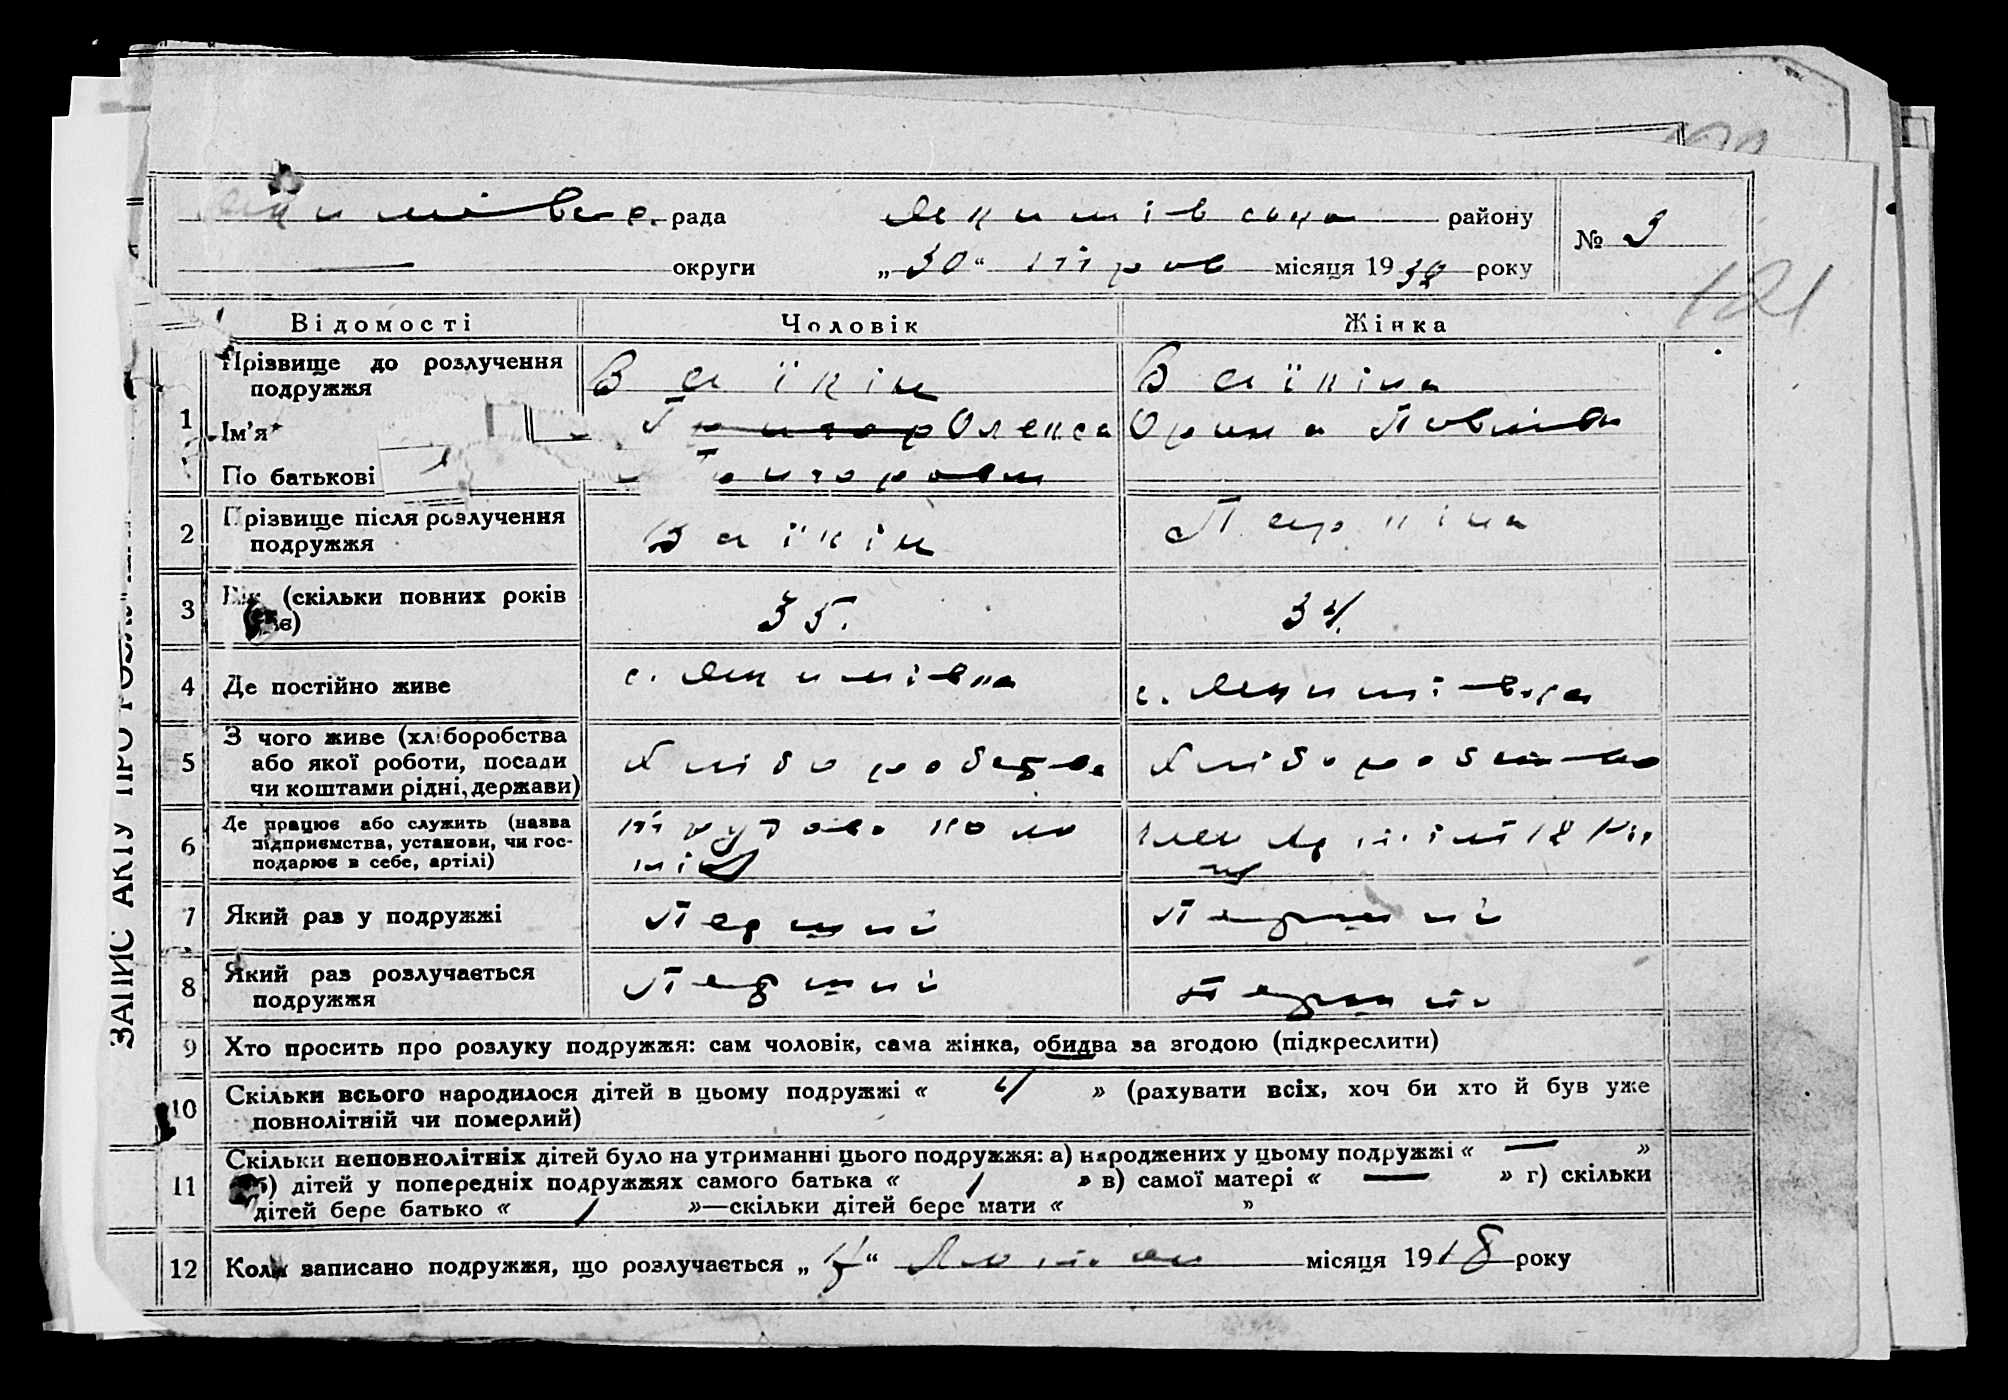 рада Якимівська району
№ 3
округи „30“ трав місяця 1932 року
121
Відомості Чоловік Жінка
1 Прізвище до розлучення подружжя Ваікін Ваікіна
Ім'я Григор Олекса Орина Павлівна
По батькові Григорович
2 Прізвище після розлучення подружжя Ваікін Паркіна
3 Вік (скільки повних років має) 35. 34.
4 Де постійно живе с. Якимівка с. Якимівка
5 З чого живе (хліборобства
або якої роботи, посади
чи коштами рідні, держави) Хліборобство Хліборобство
6 Де працює або служить (назва
підприємства, установи, чи гос-
подарює в себе, артілі) член
7 Який раз у подружжі Перший Перший
8 Який раз розлучається
подружжя Перший Перший
9 Хто просить про розлуку подружжя: сам чоловік, сама жінка, обидва за згодою (підкреслити)
10 Скільки всього народилося дітей в цьому подружжі « 4 » (рахувати всіх, хоч би хто й був уже
повнолітній чи померлий)
11 Скільки неповнолітніх дітей було на утриманні цього подружжя: а) народжених у цьому подружжі « — »
б) дітей у попередніх подружжях самого батька « / » в) самої матері « — » г) скільки
дітей бере батько « / »—скільки дітей бере мати « »
12 Коли записано подружжя, що розлучається „ “ місяця 1918 року
ЗАПИС АКТУ ПРО